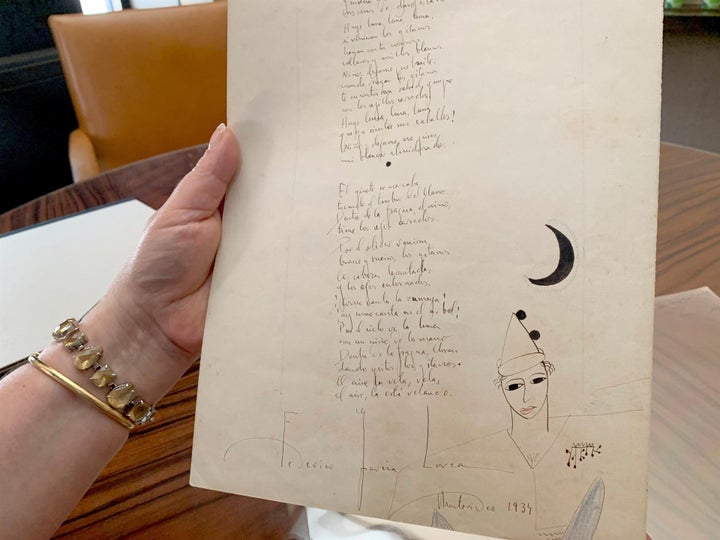 Huye luna, luna, luna,
si vinieran los gitanos
harían con tu
collares y anillos blancos.
Niño, déjame que baile;
cuando vengan los gitanos
te encontrarán sobre el yunque
con los ojillos cerrados.
Huye luna, luna, luna
que ya siento sus caballos!
¡Niño, déjame, no pises
mi blancor almidonado.
El jinete se acercaba
tocando el tambor del llano.
Dentro de la fragua, el niño,
tiene los ojos cerrados.
Por el olivar venían,
bronce y sueño, los gitanos
las cabezas levantadas,
y los ojos entornados.
¡Como canta la zumaya!
¡ay como canta en el arbol!
Por el cielo va la luna
con un niño de la mano.
Dentro de la fragua, lloran
dando gritos, los gitanos.
El aire la vela, vela,
el aire, la está velando.
Federico García Lorca
Montevideo 1934